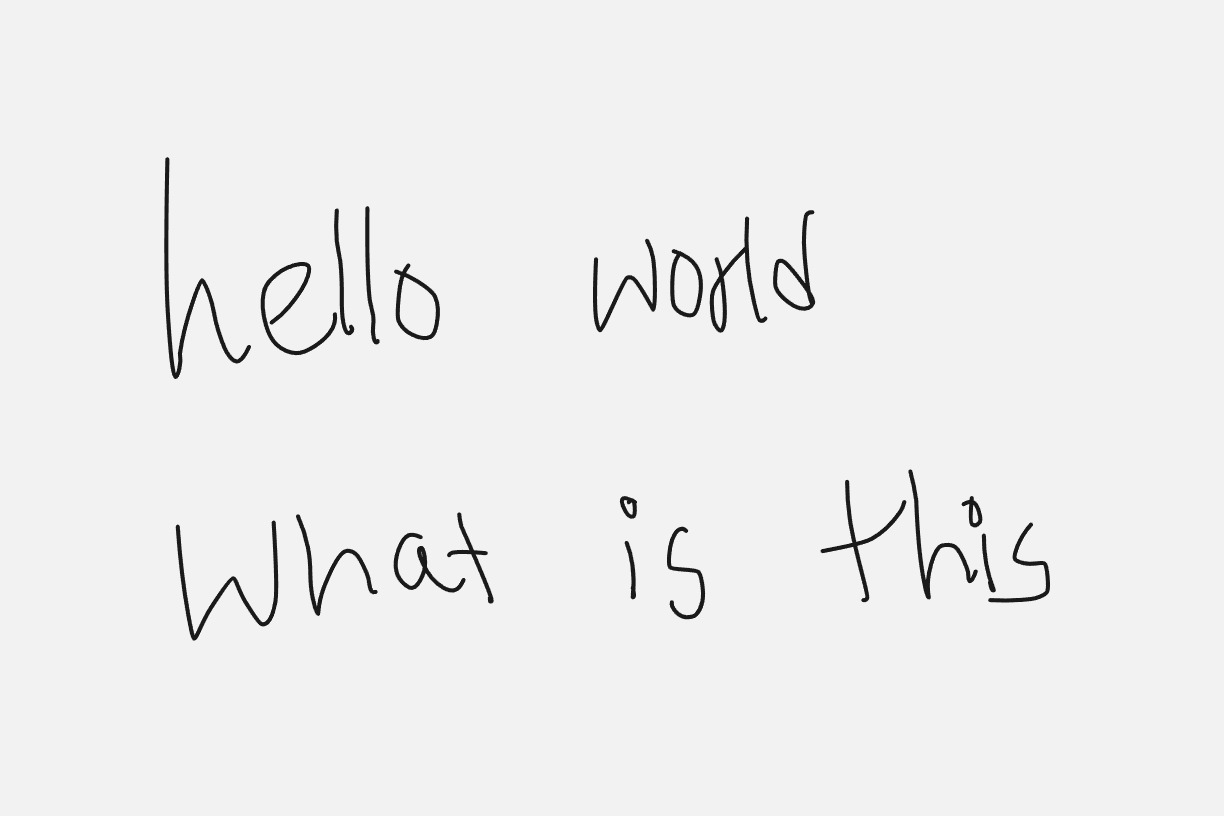 hello world
What is this